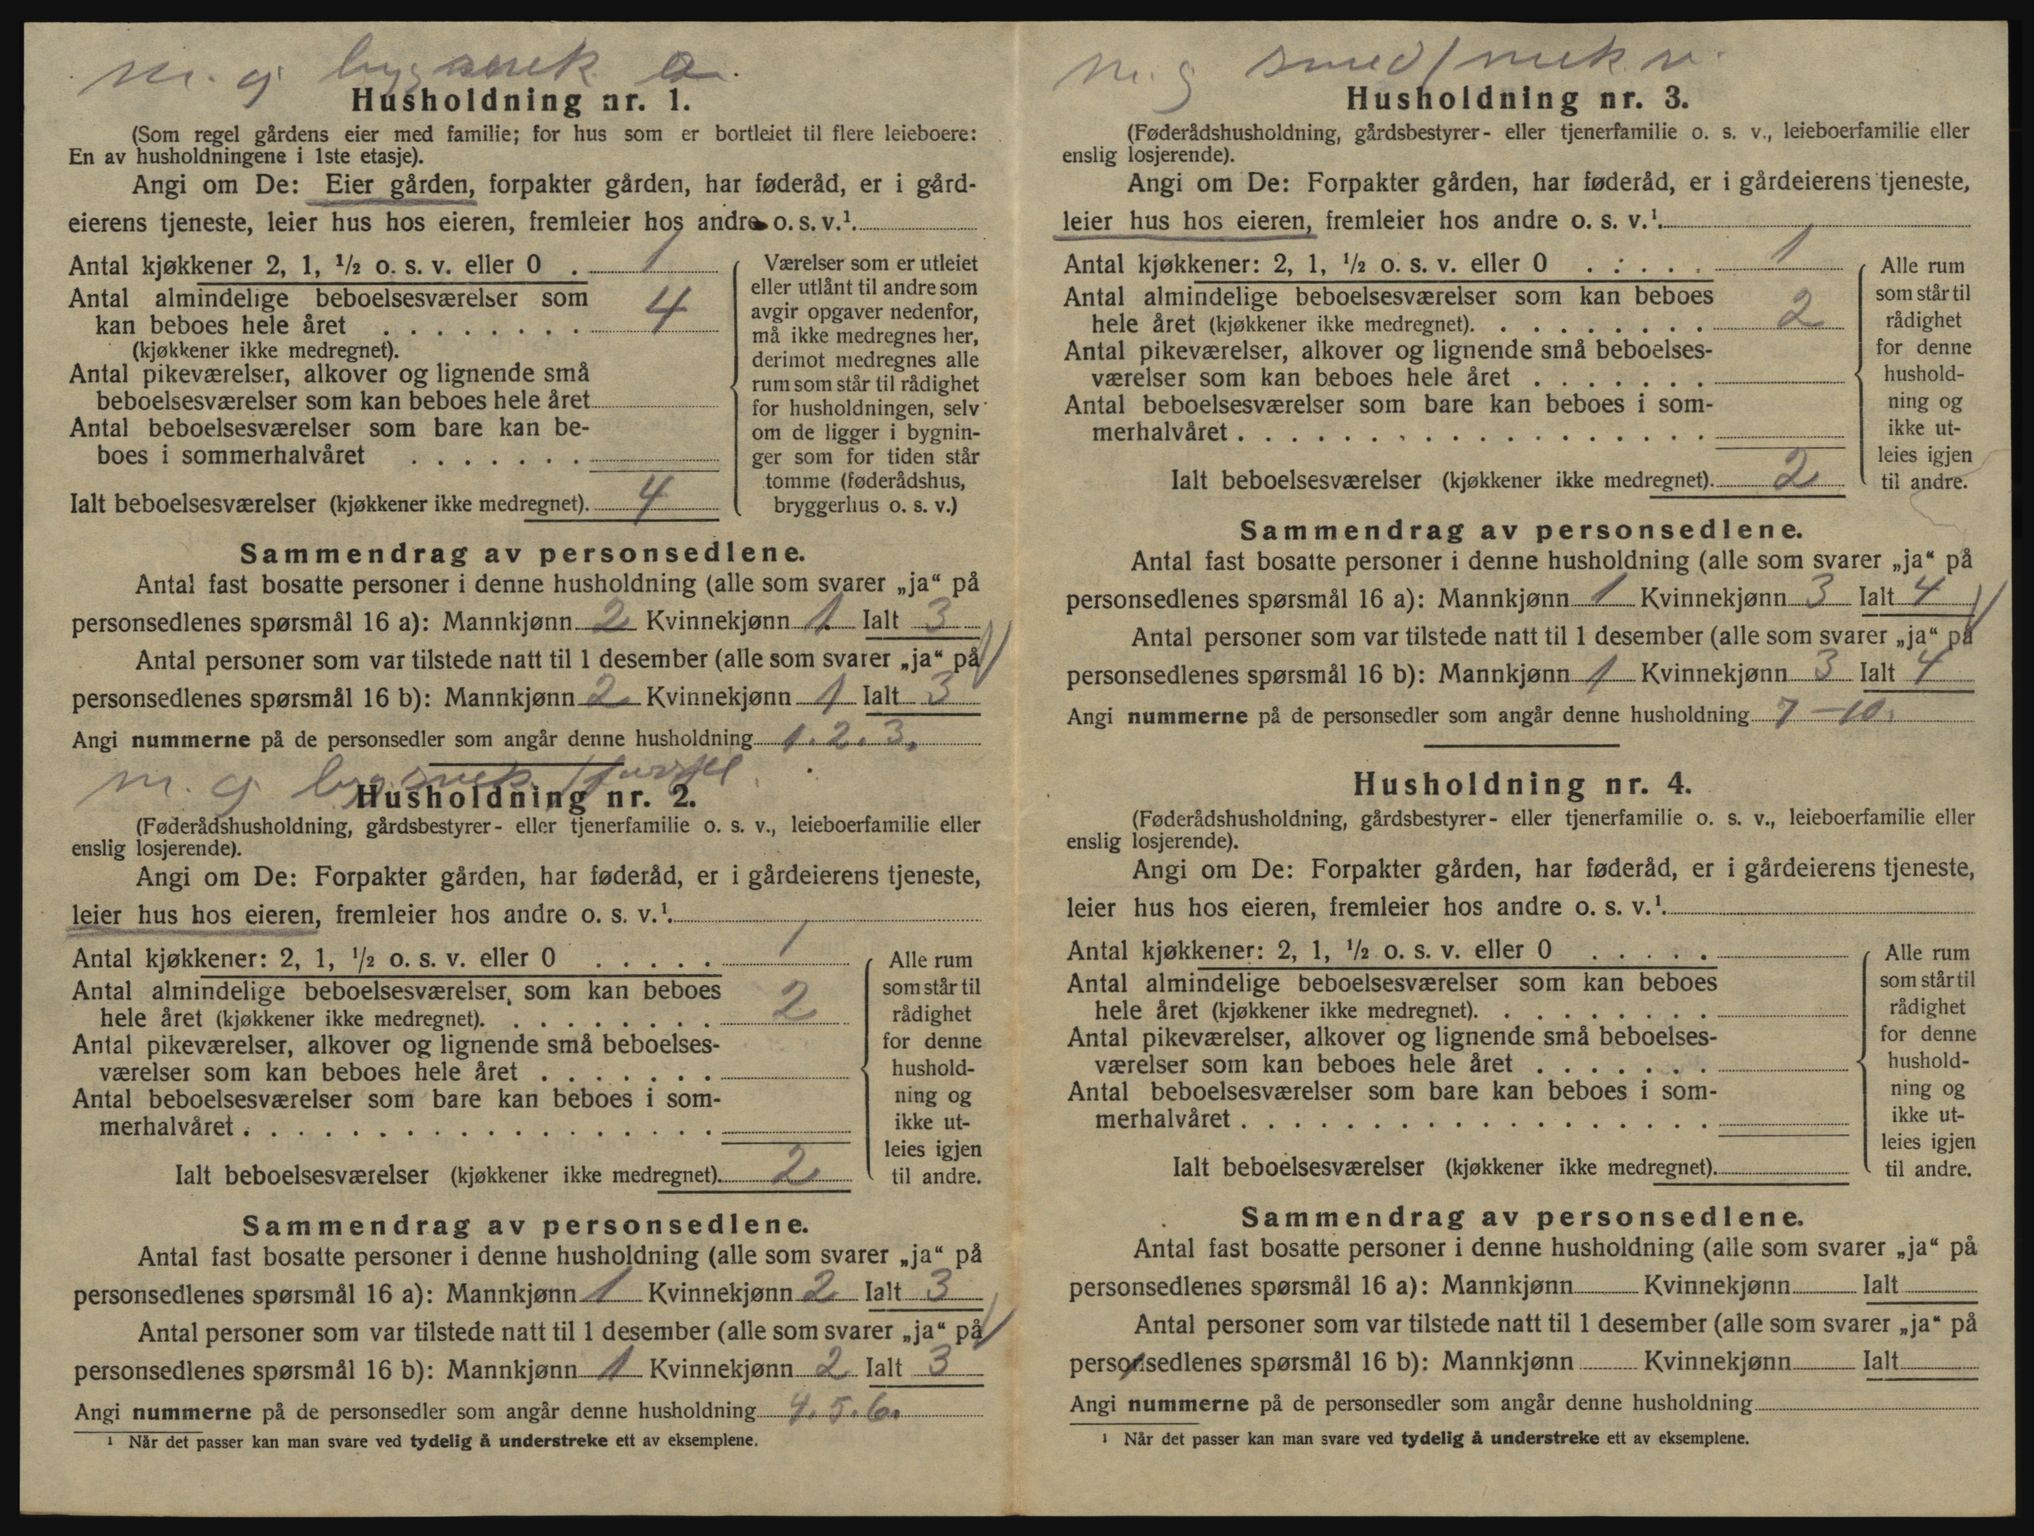 m. g byg
Husholdning nr. 1.
(Som regel gårdens eier med familie; for hus som er bortleiet til flere leieboere:
En av husholdningene i 1ste etasje).
Angi om De: Eier gården, forpakter gården, har føderåd, er i gård-
eierens tjeneste, leier hus hos eieren, fremleier hos andre o. s. v.¹.
Antal kjøkkener 2, 1, ½ o. s. v. eller 0 . 1
Antal almindelige beboelsesværelser som
kan beboes hele året . . . . . . . . 4
(kjøkkener ikke medregnet).
Antal pikeværelser, alkover og lignende små
beboelsesværelser som kan beboes hele året
Antal beboelsesværelser som bare kan be-
boes i sommerhalvåret . . . . . . .
Ialt beboelsesværelser (kjøkkener ikke medregnet). 4
Værelser som er utleiet
eller utlånt til andre som
avgir opgaver nedenfor,
må ikke medregnes her,
derimot medregnes alle
rum som står til rådighet
for husholdningen, selv
om de ligger i bygnin-
ger som for tiden står
tomme (føderådshus,
bryggerhus o. s. v.)
Sammendrag av personsedlene.
Antal fast bosatte personer i denne husholdning (alle som svarer „ja“ på
personsedlenes spørsmål 16 a): Mannkjønn 2 Kvinnekjønn 1. Ialt 3
Antal personer som var tilstede natt til 1 desember (alle som svarer „ja“ på
personsedlenes spørsmål 16 b): Mannkjønn 2 Kvinnekjønn 1 Ialt 3
Angi nummerne på de personsedler som angår denne husholdning 1. 2. 3.
m. g byg
Husholdning nr. 2.
(Føderådshusholdning, gårdsbestyrer- eller tjenerfamilie o. s. v., leieboerfamilie eller
enslig losjerende).
Angi om De: Forpakter gården, har føderåd, er i gårdeierens tjeneste,
leier hus hos eieren, fremleier hos andre o. s. v.¹.
Antal kjøkkener: 2, 1, ½ o. s. v. eller 0 . . . . . 1
Antal almindelige beboelsesværelser som kan beboes
hele året (kjøkkener ikke medregnet). . . . . . . . . 2
Antal pikeværelser, alkover og lignende små beboelses-
værelser som kan beboes hele året . . . . . . .
Antal beboelsesværelser som bare kan beboes i som-
merhalvåret . . . . . . . . . . . . . . . . . .
Ialt beboelsesværelser (kjøkkener ikke medregnet). 2
Alle rum
som står til
rådighet
for denne
hushold-
ning og
ikke ut-
leies igjen
til andre.
Sammendrag av personsedlene.
Antal fast bosatte personer i denne husholdning (alle som svarer „ja“ på
personsedlenes spørsmål 16 a): Mannkjønn 1 Kvinnekjønn 2 Ialt 3
Antal personer som var tilstede natt til 1 desember (alle som svarer „ja“ på
personsedlenes spørsmål 16 b): Mannkjønn 1 Kvinnekjønn 2 Ialt 3
Angi nummerne på de personsedler som angår denne husholdning 4. 5. 6.
¹ Når det passer kan man svare ved tydelig å understreke ett av eksemplene.
m. g smed/mek. v.
Husholdning nr. 3.
(Føderådshusholdning, gårdsbestyrer- eller tjenerfamilie o. s. v., leieboerfamilie eller
enslig losjerende).
Angi om De: Forpakter gården, har føderåd, er i gårdeierens tjeneste,
leier hus hos eieren, fremleier hos andre o. s. v.¹.
Antal kjøkkener: 2, 1, ½ o. s. v. eller 0 . . . . . 1
Antal almindelige beboelsesværelser som kan beboes
hele året (kjøkkener ikke medregnet). . . . . . . . . 2
Antal pikeværelser, alkover og lignende små beboelses-
værelser som kan beboes hele året . . . . . . .
Antal beboelsesværelser som bare kan beboes i som-
merhalvåret . . . . . . . . . . . . . . . . . .
Ialt beboelsesværelser (kjøkkener ikke medregnet). 2
Alle rum
som står til
rådighet
for denne
hushold-
ning og
ikke ut-
leies igjen
til andre.
Sammendrag av personsedlene.
Antal fast bosatte personer i denne husholdning (alle som svarer „ja“ på
personsedlenes spørsmål 16 a): Mannkjønn 1 Kvinnekjønn 3 Ialt 4
Antal personer som var tilstede natt til 1 desember (alle som svarer „ja“ på
personsedlenes spørsmål 16 b): Mannkjønn 1 Kvinnekjønn 3 Ialt 4
Angi nummerne på de personsedler som angår denne husholdning 7-10.
Husholdning nr. 4.
(Føderådshusholdning, gårdsbestyrer- eller tjenerfamilie o. s. v., leieboerfamilie eller
enslig losjerende).
Angi om De: Forpakter gården, har føderåd, er i gårdeierens tjeneste,
leier hus hos eieren, fremleier hos andre o. s. v.¹.
Antal kjøkkener: 2, 1, ½ o. s. v. eller 0 . . . . .
Antal almindelige beboelsesværelser som kan beboes
hele året (kjøkkener ikke medregnet). . . . . . . . .
Antal pikeværelser, alkover og lignende små beboelses-
værelser som kan beboes hele året . . . . . . .
Antal beboelsesværelser som bare kan beboes i som-
merhalvåret . . . . . . . . . . . . . . . . . .
Ialt beboelsesværelser (kjøkkener ikke medregnet).
Alle rum
som står til
rådighet
for denne
hushold-
ning og
ikke ut-
leies igjen
til andre.
Sammendrag av personsedlene.
Antal fast bosatte personer i denne husholdning (alle som svarer „ja“ på
personsedlenes spørsmål 16 a): Mannkjønn Kvinnekjønn Ialt
Antal personer som var tilstede natt til 1 desember (alle som svarer „ja“ på
personsedlenes spørsmål 16 b): Mannkjønn Kvinnekjønn Ialt
Angi nummerne på de personsedler som angår denne husholdning
¹ Når det passer kan man svare ved tydelig å understreke ett av eksemplene.